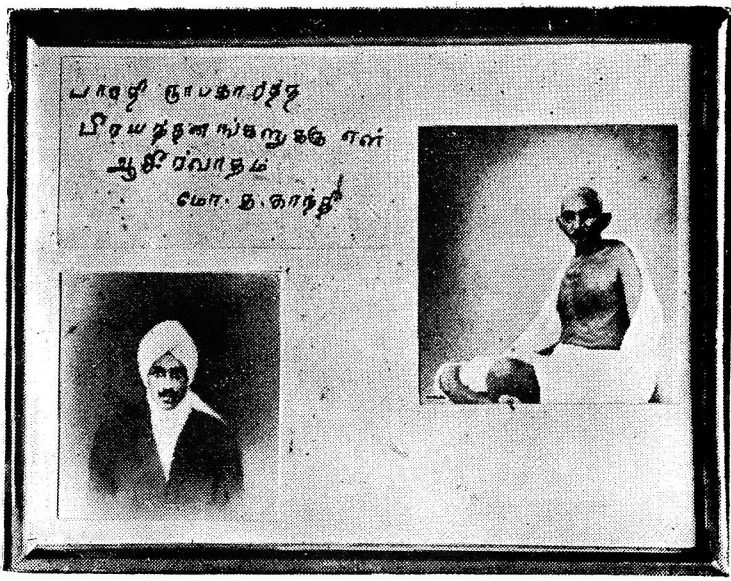 பாரதி ஞாபகார்த்த
பிரயத்தனங்களுக்கு என்
ஆசிர்வாதம்
மோ. க. காந்தி